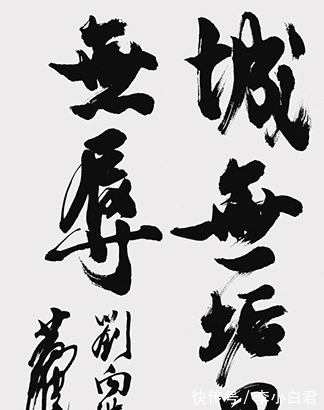 城無垢
無辱
劉向
快传号/李小白君